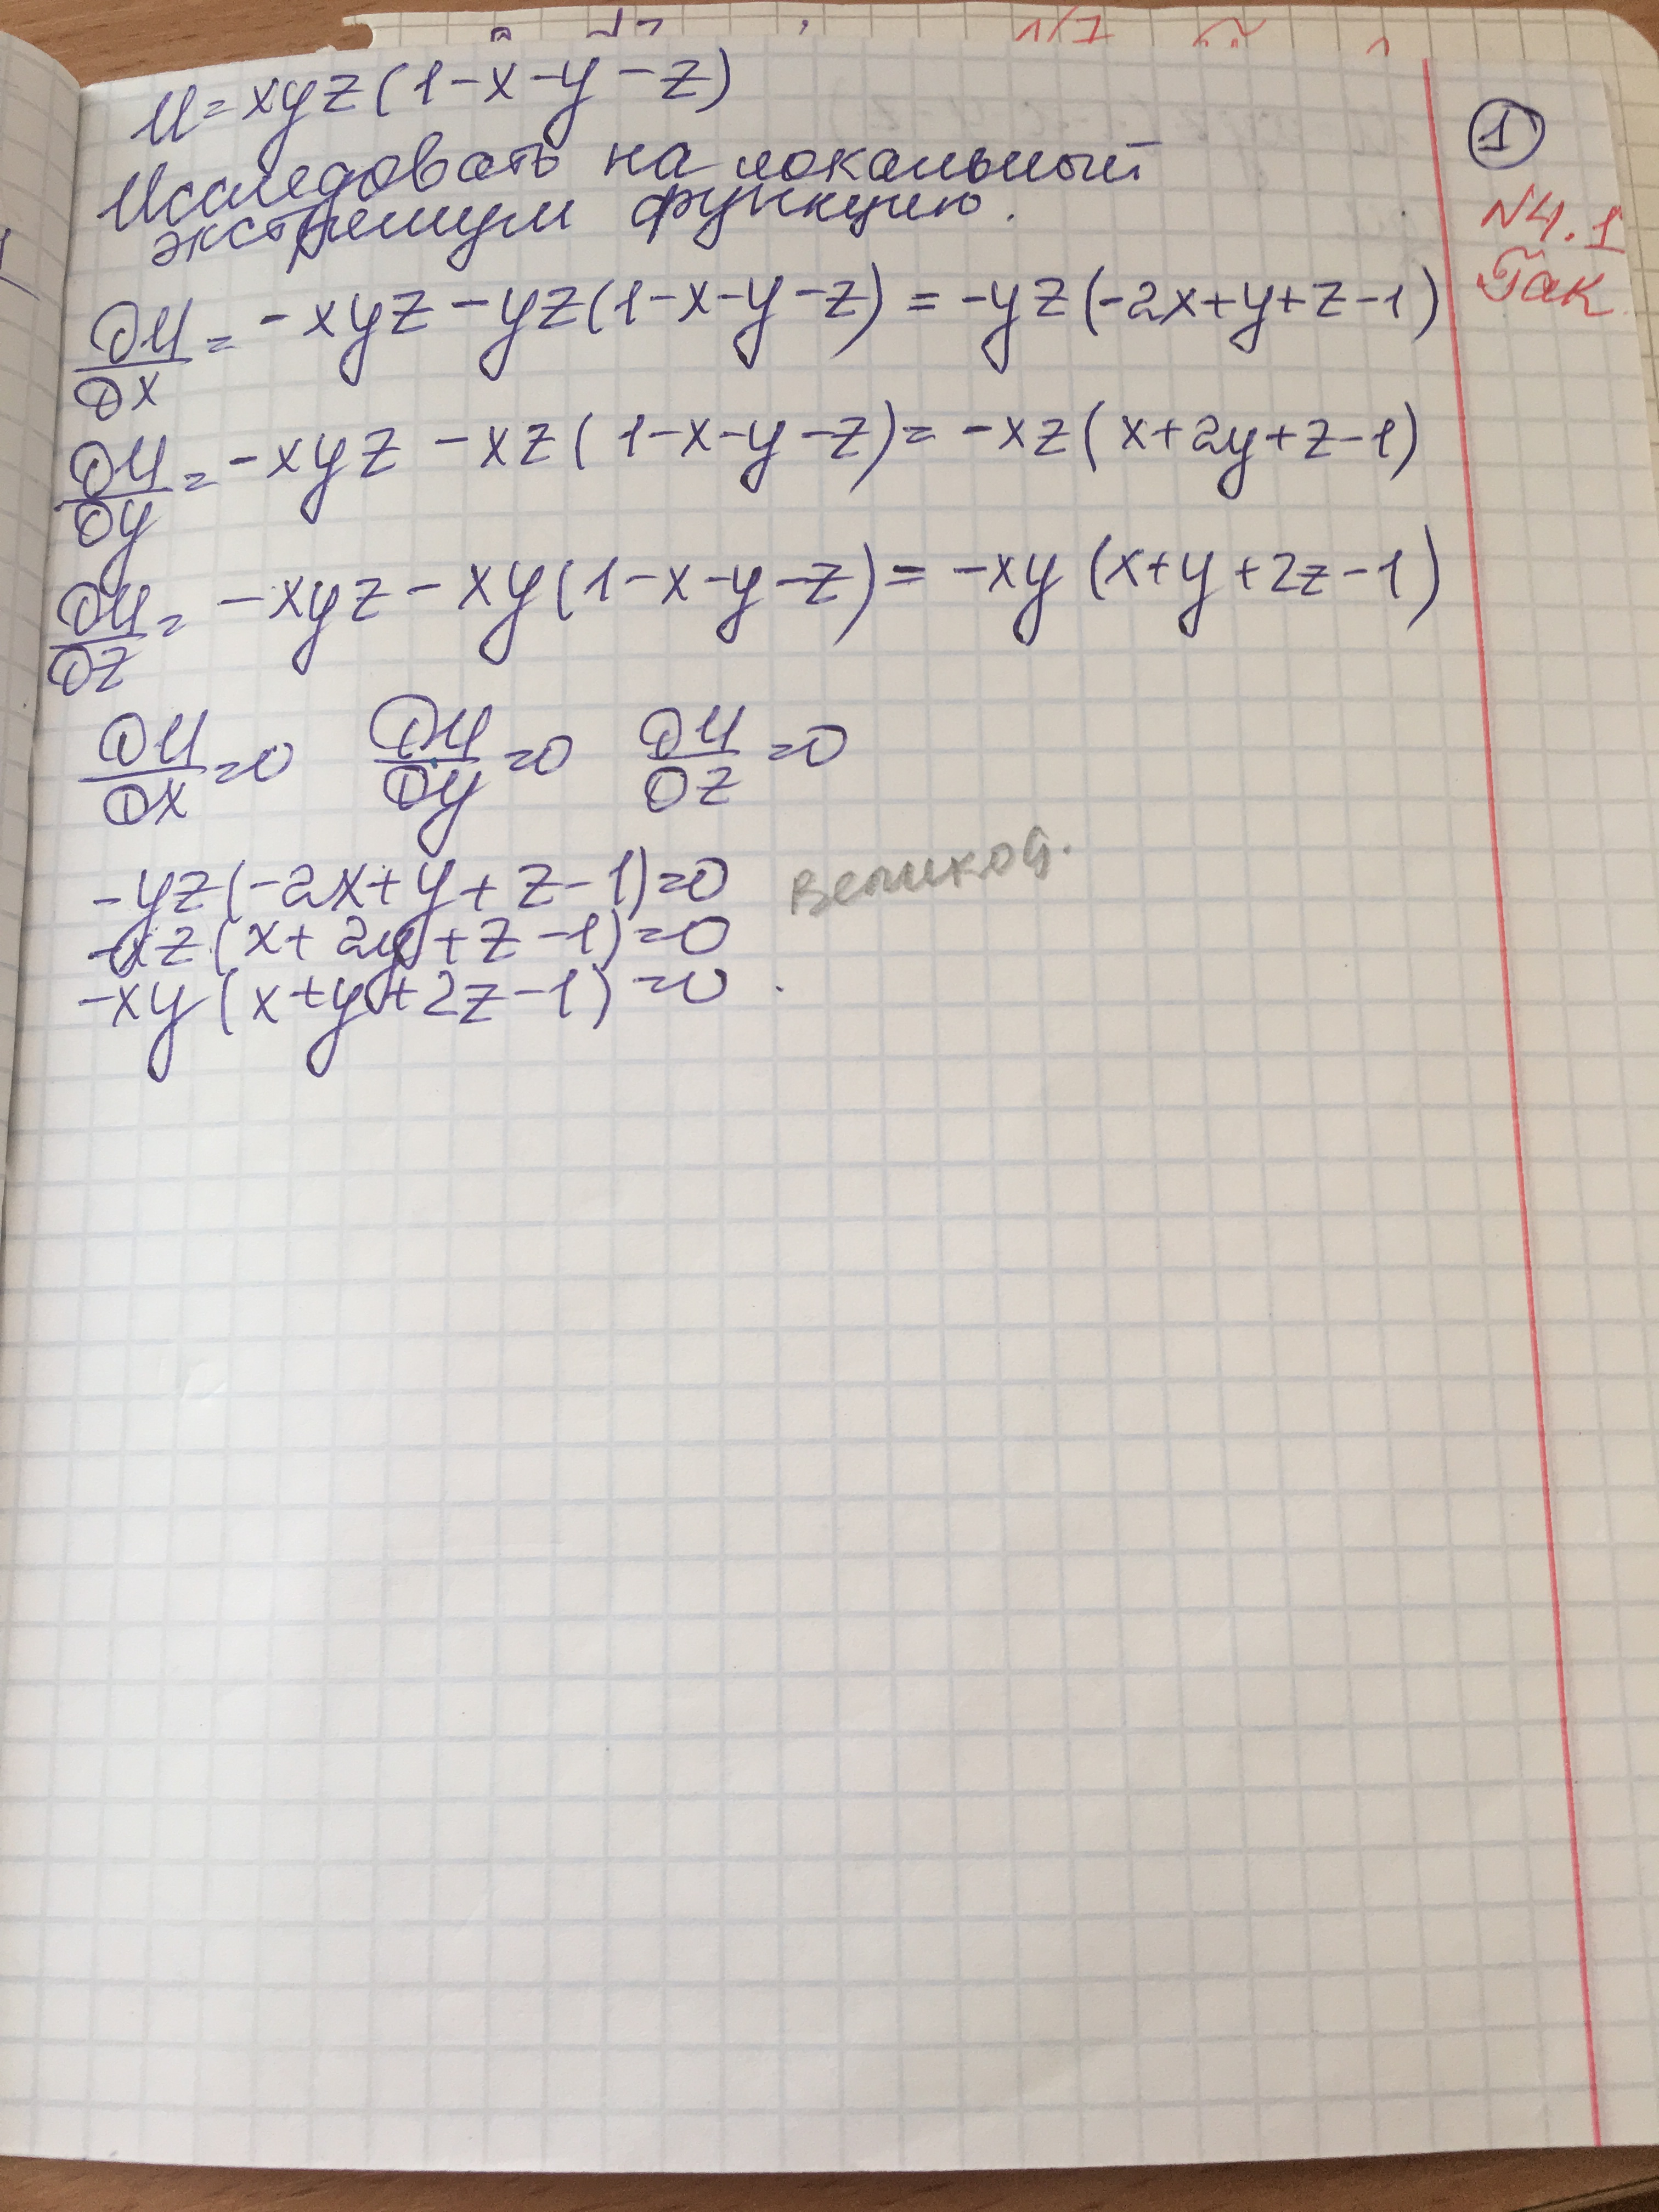 U=xyz(1-x-y-z)
Исследовать на локальный
экстремум функцию.
∂U/∂x = -xyz-yz(1-x-y-z) = -yz(-2x+y+z-1)
∂U/∂y = -xyz-xz(1-x-y-z) = -xz(x+2y+z-1)
∂U/∂z = -xyz-xy(1-x-y-z) = -xy(x+y+2z-1)
∂U/∂x=0 ∂U/∂y=0 ∂U/∂z=0
-yz(-2x+y+z-1)=0
-xz(x+2y+z-1)=0
-xy(x+y+2z-1)=0.
Великод.
1
N4.1
Гак.